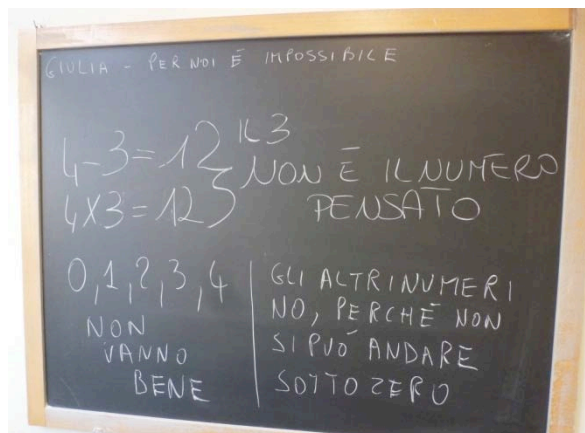 GIULIA - PER NOI È IMPOSSIBILE
4-3=12
4x3=12
IL 3
NON È IL NUMERO
PENSATO
0,1,2,3,4
NON
VANNO
BENE
GLI ALTRI NUMERI
NO, PERCHÉ NON
SI PUÒ ANDARE
SOTTO ZERO